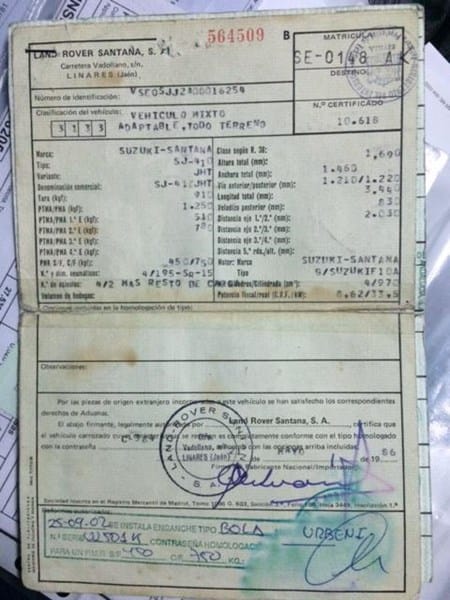 564509 B
LAND ROVER SANTANA, S. A.
Carretera Vadollano, s/n,
LINARES (Jaén)
MATRICULA
SE-0148 AK
DESTINO
Número de identificación: VSE0SJJ2100016254
Nº CERTIFICADO
10.618
Clasificación del vehículo: VEHICULO MIXTO
3133 ADAPTABLE, TODO TERRENO
Marca: SUZUKI-SANTANA
Tipo: SJ-410
Variante: JHT
Denominación comercial: SJ-410JHT
Tara (kgf): 910
PTMA/PMA (kgf): 1.250
PTMA/PMA 1.º E (kgf): 510
PTMA/PMA 2.º E (kgf): 780
PTMA/PMA 3.º E (kgf):
PTMA/PMA 4.º E (kgf):
PMR S/F, C/F (kgf): 450/750
N.º y dim. neumáticos: 4/195-SR-15
N.º de asientos: 4/2 MAS RESTO DE CARGA
Volumen de bodegas:
Clase según R. 30:
Altura total (mm): 1,690
Anchura total (mm): 1.460
Vía anterior/posterior (mm): 1.210/1.220
Longitud total (mm): 3,440
Voladizo posterior (mm): 830
Distancia eje 1.º/2.º (mm): 2.030
Distancia eje 2.º/3.º (mm):
Distancia eje 3.º/4.º (mm):
Distancia 5.ª rda./últ. (mm):
Motor: Marca SUZUKI-SANTANA
Tipo 9/SUZUKIF10A
N.º Cilindros/Cilindrada (cm³) 4/970
Potencia fiscal/real (C.V.F./kW) 8.62/33,5
Opciones incluidas en la homologación de tipo:
Observaciones:
Por las piezas de origen extranjero incorporadas a este vehículo se han satisfecho los correspondientes
derechos de Aduanas.
El abajo firmante, legalmente autorizado por Land Rover Santana, S. A., certifica que
el vehículo carrozado es completamente conforme con el tipo homologado
con la contraseña con las opciones arriba incluidas.
MAYO de 19 86
Firma Fabricante Nacional/Importador,
LAND ROVER SANTANA S.A.
Vadollano, s/n
LINARES (Jaén)
Sociedad inscrita en el Registro Mercantil de Madrid, Tomo
Reformas autorizadas:
25-09-02 SE INSTALA ENGANCHE TIPO BOLA URBENI
N.º SERIE CONTRASEÑA HOMOLOGAC
PARA UN P.M.R. S/F 450 C/F 750 KG.